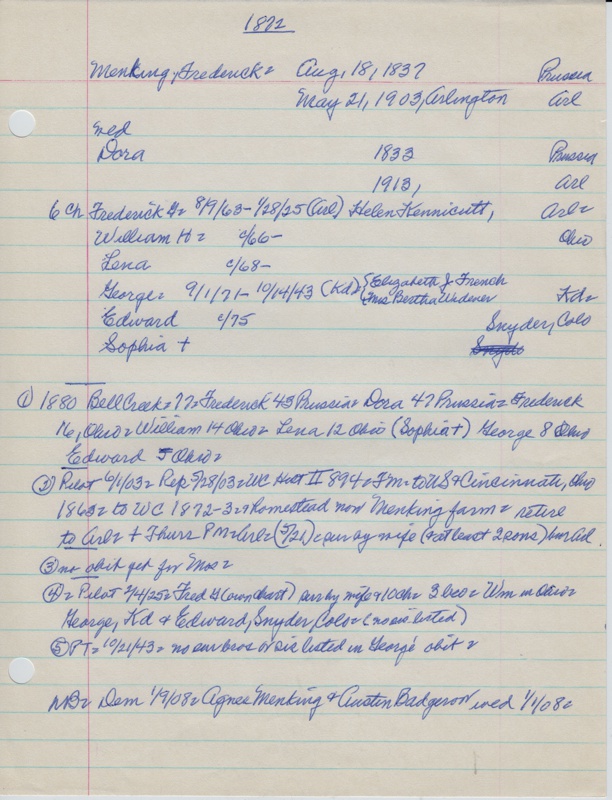 1872
Menking, Frederick = Aug, 18, 1837 Prussia
May 21, 1903, Arlington Arl
wed
Dora 1833 Prussia
1913, Arl
6 ch Frederick H = 8/9/63 - 1/28/25 (Arl) Helen Kennicutt, Arl =
William H = c/66 - Ohio
Lena c/68 -
George = 9/1/71 - 10/14/43 (Kd) = {Elizabeth J. French
2 Mrs Bertha Widener Kd =
Edward c/75 Snyder, Colo
Sophia +
① 1880 Bell Creek = 77 = Frederick 43 Prussia = Dora 47 Prussia = Frederick
16, Ohio = William 14 Ohio = Lena 12 Ohio (Sophia +) George 8 Ohio
Edward 5 Ohio =
② Pilot 6/1/03 = Rep 5/28/03 = WC Hist II 894 = Fm = to US & Cincinnati, Ohio
1863 = to WC 1872-3 = homestead now Menking farm = retire
to Arl = + Thurs PM = Arl = (5/21) = sur by wife (& at least 2 sons) bur Arl
③ no obit yet for Mos =
④ = Pilot 2/4/25 = Fred H (own chart) sur by wife & 10 ch = 3 bro = Wm in Ohio =
George, Kd & Edward, Snyder, Colo = (no sis listed)
⑤ PT = 10/21/43 = no sur bros or sis listed in George' obit =
NB = Dem 1/9/08 = Agnes Menking & Austin Badgerow wed 1/1/08 =